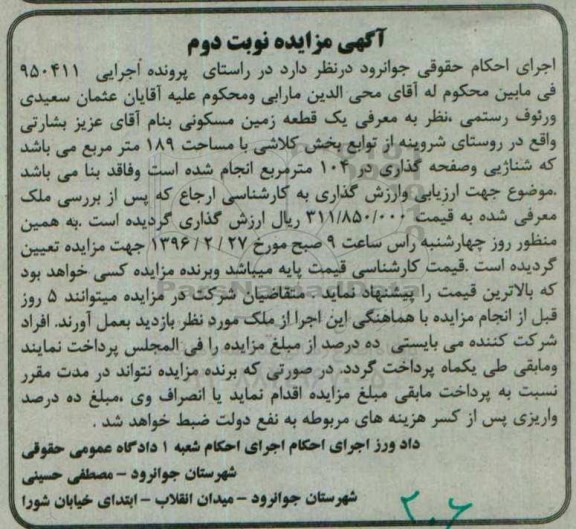 آگهی مزایده نوبت دوم
اجرای احکام حقوقی جوانرود درنظر دارد در راستای پرونده اجرایی ۹۵۰۴۱۱
فی مابین محکوم له آقای محی الدین مارابی ومحکوم علیه آقایان عثمان سعیدی
ورئوف رستمی ،نظر به معرفی یک قطعه زمین مسکونی بنام آقای عزیز بشارتی
واقع در روستای شروینه از توابع بخش کلاشی با مساحت ۱۸۹ متر مربع می باشد
که شناژبی وصفحه گذاری در ۱۰۴ مترمربع انجام شده است وفاقد بنا می باشد
.موضوع جهت ارزیابی وارزش گذاری به کارشناسی ارجاع که پس از بررسی ملک
معرفی شده به قیمت ۳۱۱/۸۵۰/۰۰۰ ریال ارزش گذاری گردیده است .به همین
منظور روز چهارشنبه راس ساعت ۹ صبح مورخ ۱۳۹۶/۲/۲۷ جهت مزایده تعیین
گردیده است .قیمت کارشناسی قیمت پایه میباشد وبرنده مزایده کسی خواهد بود
که بالاترین قیمت را پیشنهاد نماید . متقاضیان شرکت در مزایده میتوانند ۵ روز
قبل از انجام مزایده با هماهنگی این اجرا از ملک مورد نظر بازدید بعمل آورند. افراد
شرکت کننده می بایستی ده درصد از مبلغ مزایده را فی المجلس پرداخت نمایند
ومابقی طی یکماه پرداخت گردد. در صورتی که برنده مزایده نتواند در مدت مقرر
نسبت به پرداخت مابقی مبلغ مزایده اقدام نماید یا انصراف وی ،مبلغ ده درصد
واریزی پس از کسر هزینه های مربوطه به نفع دولت ضبط خواهد شد .
داد ورز اجرای احکام اجرای احکام شعبه ۱ دادگاه عمومی حقوقی
شهرستان جوانرود - مصطفی حسینی
شهرستان جوانرود - میدان انقلاب - ابتدای خیابان شورا
۲۰۶